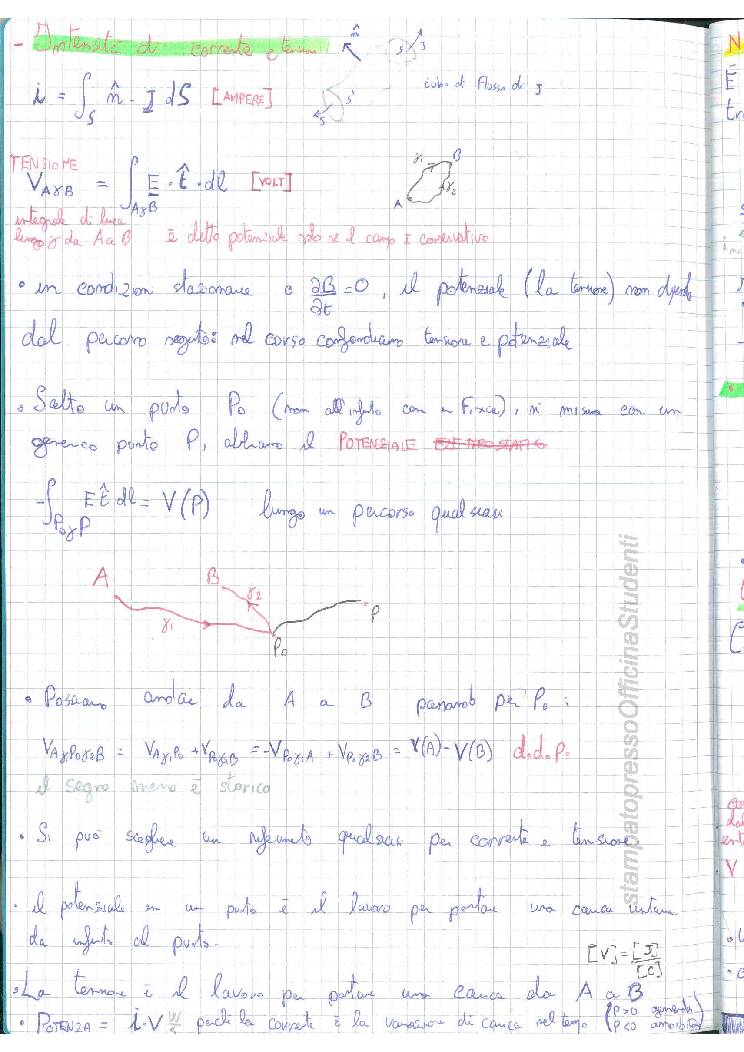 - Intensità di corrente e tensione
n̂
S J
S'
tubo di Flusso di J
i = ∫_S n̂ · J dS [AMPERE]
TENSIONE
V_AγB = ∫_AγB E · t̂ · dl [VOLT]
A B γ1 γ2
integrale di linea
lungo γ da A a B È detto potenziale solo se il campo è conservativo
• in condizioni stazionarie o ∂B/∂t = 0, il potenziale (la tensione) non dipende
dal percorso seguito: nel corso confondiamo tensione e potenziale
• Scelto un punto P0 (non all'infinito con in Fisica), si misura con un
generico punto P, abbiamo il POTENZIALE
-∫_P0γP E t̂ dl = V(P) lungo un percorso qualsiasi
A B γ2
γ1 P0 P
• Possiamo andare da A a B passando per P0:
V_Aγ1P0γ2B = V_Aγ1P0 + V_P0γ2B = -V_P0γ1A + V_P0γ2B = V(A) - V(B) d.d.p.
il segno meno è storico
• Si può scegliere un riferimento qualsiasi per corrente e tensione
• il potenziale in un punto è il lavoro per portare una carica unitaria
da infinito al punto.
[V] = [J]/[C]
• La tensione è il lavoro per portare una carica da A a B
• POTENZA = i · V perché la corrente è la variazione di carica nel tempo (p>0
p<0
stampatopressoOfficinaStudenti
N
È
V